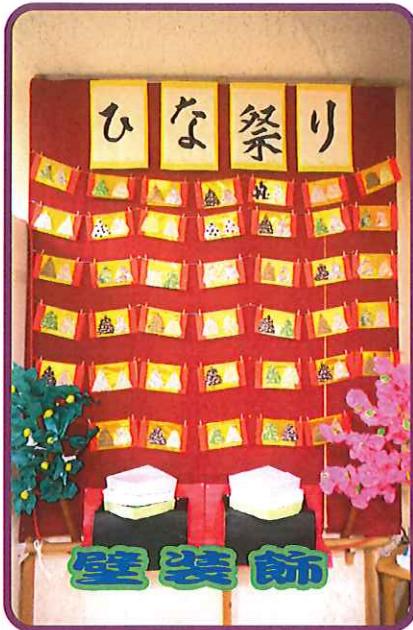 ひな祭り
壁装飾